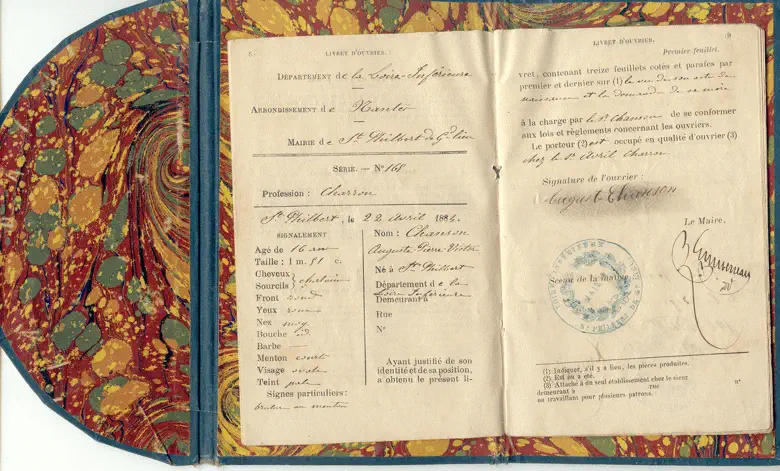 8.
LIVRET D'OUVRIER.
DÉPARTEMENT de la Loire-Inférieure
ARRONDISSEMENT de Nantes
MAIRIE de St Philbert de G. Lieu
SÉRIE. — No 168
Profession : Charron
St Philbert, le 22 Avril 1884.
SIGNALEMENT
Agé de 16 ans
Taille : 1 m. 51 c.
Cheveux
Sourcils } chatain
Front rond
Yeux roux
Nez moy
Bouche id
Barbe
Menton court
Visage ovale
Teint pale
Signes particuliers :
au menton
Nom : Chanson
Auguste Pierre Victor
Né à St Philbert
Département de la
Loire Inférieure
Demeurant à
Rue
No
Ayant justifié de son
identité et de sa position,
a obtenu le présent li-
LIVRET D'OUVRIER.
9
Premier feuillet.
vret, contenant treize feuillets cotés et parafés par
premier et dernier sur (1) le vu de son acte de
naissance et la demande de sa mère
à la charge par le Sr Chanson de se conformer
aux lois et règlements concernant les ouvriers.
Le porteur (2) est occupé en qualité d'ouvrier (3)
chez le Sr Avril Charron
Signature de l'ouvrier :
August Chanson
Le Maire,
Sceau de la mairie
(1) Indiquer, s'il y a lieu, les pièces produites.
(2) Est ou a été.
(3) Attaché à un seul établissement chez le sieur
demeurant à rue no
ou travaillant pour plusieurs patrons.